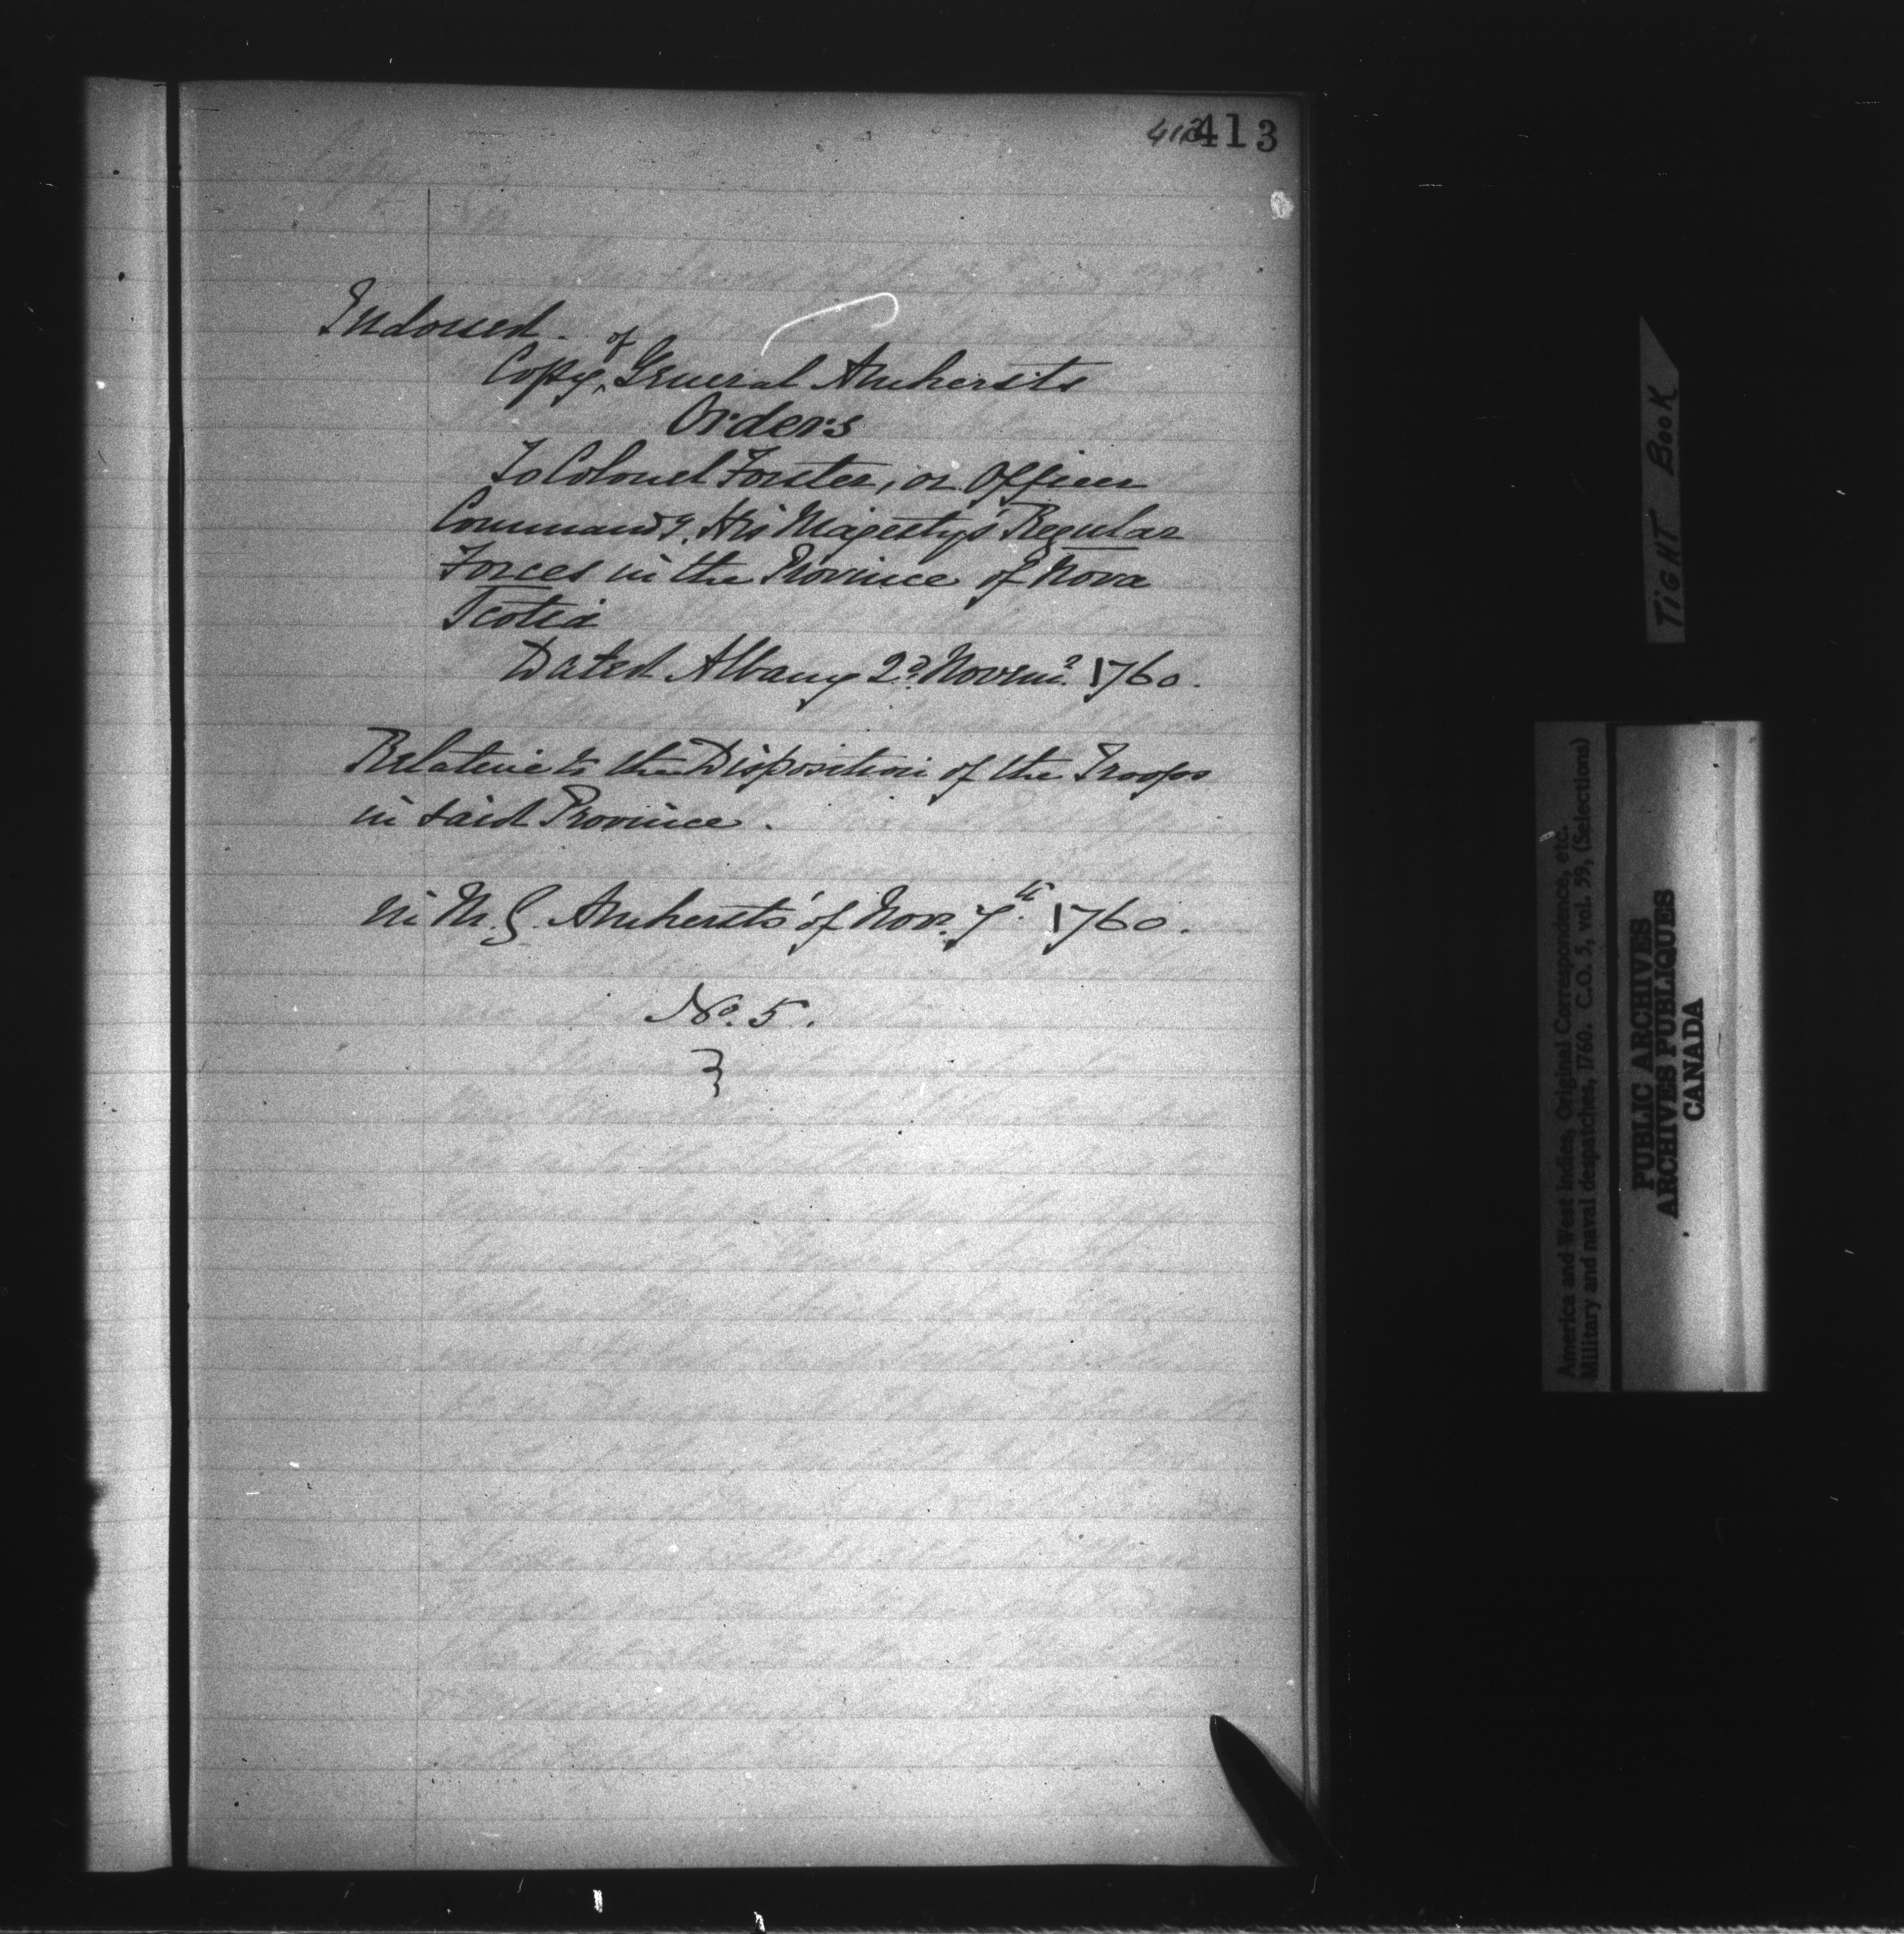 413
Indorsed.
Copy of General Amhersts
Orders
To Colonel Forster, or Officer
Commandg. His Majesty's Regular
Forces in the Province of Nova
Scotia
Dated Albany 2d. Novemr. 1760.
Relative to the Disposition of the Troops
in said Province.
in M. G. Amhersts' of Novr. 7th. 1760.
No. 5.
TIGHT BOOK
America and West Indies, Original Correspondence, etc.
Military and naval despatches, 1760. C.O. 5, vol. 59, (Selections)
PUBLIC ARCHIVES
ARCHIVES PUBLIQUES
CANADA